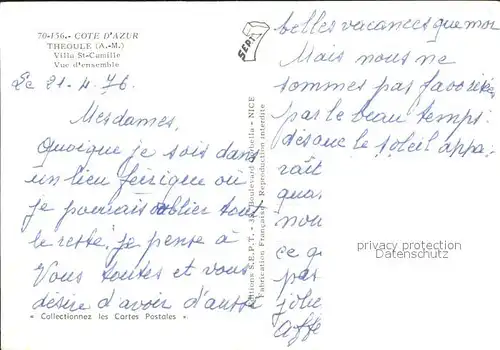 70-156. - COTE D'AZUR
THEOULE (A.-M.)
Villa St-Camille
Vue d'ensemble
Le 21.4.76.
Mesdames,
Quoique je sois dans
un lieu féerique où
je pourrais oublier tout
le reste, je pense à
Vous toutes et vous
désire d'avoir d'aussi
« Collectionnez les Cartes Postales »
SEPT
Editions S.E.P.T. - Boulevard - NICE
Fabrication Française - Reproduction interdite
belles vacances que moi
Mais nous ne
sommes pas favorisées
par le beau temps :
dès que le soleil appa-
raît
qua
nou
ce q
pas
jolie
Affe
privacy protection
Datenschutz